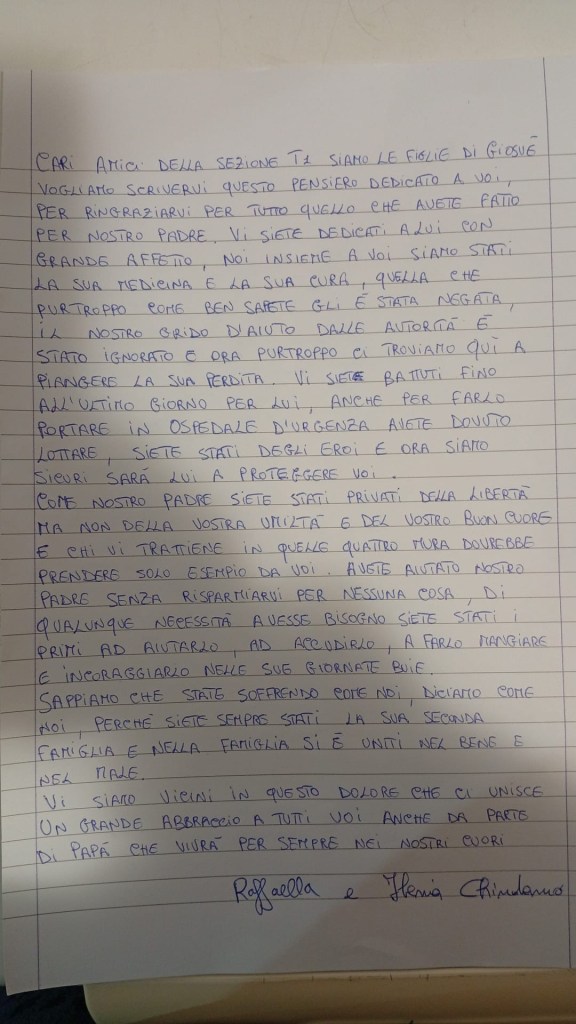 CARI AMICI DELLA SEZIONE T1 SIAMO LE FIGLIE DI GIOSUÈ
VOGLIAMO SCRIVERVI QUESTO PENSIERO DEDICATO A VOI,
PER RINGRAZIARVI PER TUTTO QUELLO CHE AVETE FATTO
PER NOSTRO PADRE. VI SIETE DEDICATI A LUI CON
GRANDE AFFETTO, NOI INSIEME A VOI SIAMO STATI
LA SUA MEDICINA E LA SUA CURA, QUELLA CHE
PURTROPPO COME BEN SAPETE GLI È STATA NEGATA,
IL NOSTRO GRIDO D'AIUTO DALLE AUTORITÀ È
STATO IGNORATO E ORA PURTROPPO CI TROVIAMO QUÌ A
PIANGERE LA SUA PERDITA. VI SIETE BATTUTI FINO
ALL'ULTIMO GIORNO PER LUI, ANCHE PER FARLO
PORTARE IN OSPEDALE D'URGENZA AVETE DOVUTO
LOTTARE, SIETE STATI DEGLI EROI E ORA SIAMO
SICURI SARÀ LUI A PROTEGGERE VOI.
COME NOSTRO PADRE SIETE STATI PRIVATI DELLA LIBERTÀ
MA NON DELLA VOSTRA UMILTÀ E DEL VOSTRO BUON CUORE
E CHI VI TRATTIENE IN QUELLE QUATTRO MURA DOVREBBE
PRENDERE SOLO ESEMPIO DA VOI. AVETE AIUTATO NOSTRO
PADRE SENZA RISPARMIARVI PER NESSUNA COSA, DI
QUALUNQUE NECESSITÀ AVESSE BISOGNO SIETE STATI I
PRIMI AD AIUTARLO, AD ACCUDIRLO, A FARLO MANGIARE
E INCORAGGIARLO NELLE SUE GIORNATE BUIE.
SAPPIAMO CHE STATE SOFFRENDO COME NOI, DICIAMO COME
NOI, PERCHÉ SIETE SEMPRE STATI LA SUA SECONDA
FAMIGLIA E NELLA FAMIGLIA SI È UNITI NEL BENE E
NEL MALE.
VI SIAMO VICINI IN QUESTO DOLORE CHE CI UNISCE
UN GRANDE ABBRACCIO A TUTTI VOI ANCHE DA PARTE
DI PAPÀ CHE VIVRÀ PER SEMPRE NEI NOSTRI CUORI
Raffaella e Ilenia Chindamo